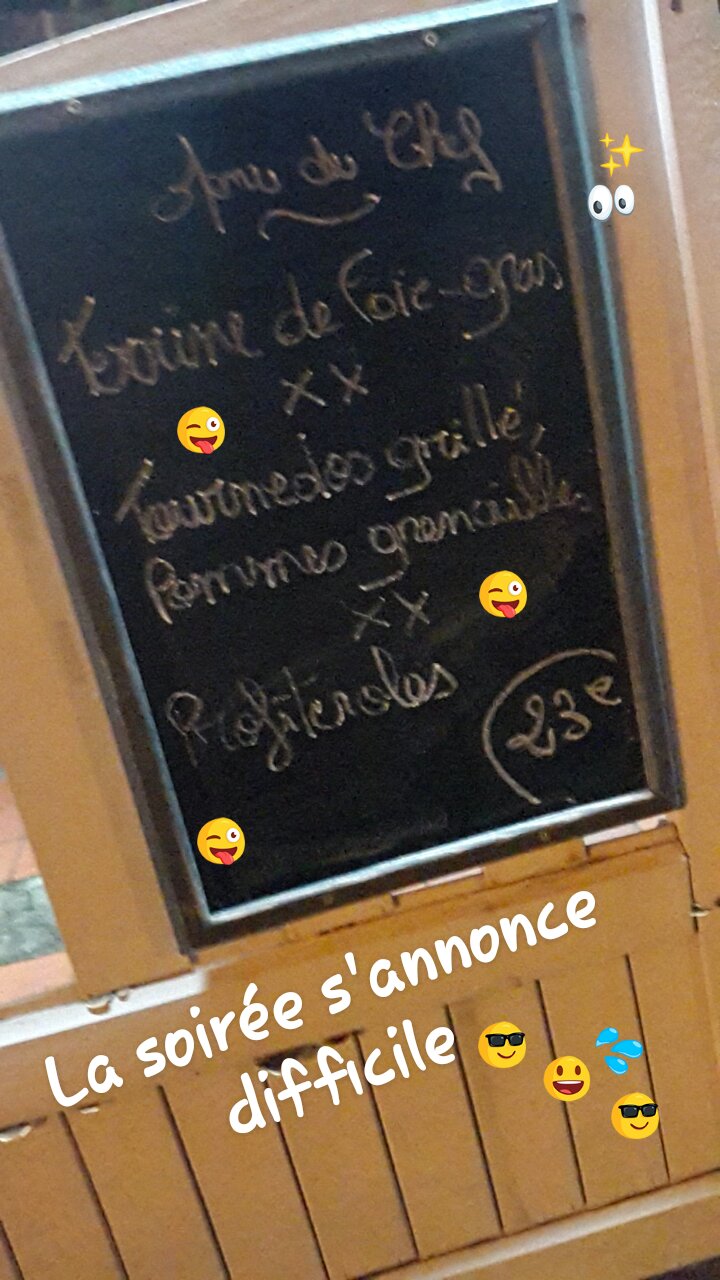 du Chef
Terrine de Foie-gras
XX
Tournedos grillé,
Pommes grenailles
XX
Profiteroles
23€
La soirée s'annonce
difficile